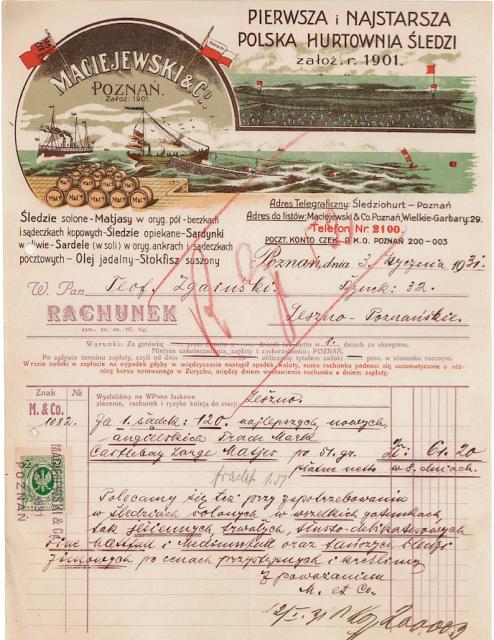 PIERWSZA i NAJSTARSZA
POLSKA HURTOWNIA ŚLEDZI
załoź. r. 1901.
MACIEJEWSKI & Co
POZNAŃ.
Założ: 1901.
Adres Telegraficzny: Śledziohurt – Poznań
Adres do listów: Maciejewski & Co. Poznań, Wielkie-Garbary 29.
Telefon Nr. 2100.
POCZT. KONTO CZEK. P. K. O. POZNAŃ 200-003
Śledzie solone – Matjasy w oryg. pół-beczkach
i sądeczkach kopowych – Śledzie opiekane – Sardynki
w oliwie – Sardele (w soli) w oryg. ankrach i sądeczkach
pocztowych – Olej jadalny – Stokfisz suszony
Poznań, dnia 3. stycznia 1931.
W. Pan Teof. Zgaiński. Rynek: 32.
RACHUNEK Leszno-Poznańskie.
zam. p.
Warunki: Za gotówkę dniach lub netto w 8. dniach za akceptem.
Miejsce uskutecznienia, zapłaty i zaskarżalności: POZNAŃ.
Po upływie terminu zapłaty, czyli od dnia obliczamy tytułem zwłoki proc. w stosunku rocznym.
Wrazie zwłoki w zapłacie na wypadek gdyby w międzyczasie nastąpił spadek waluty, suma rachunku podnosi się automatycznie o róż-
nicę kursu notowanego w Zurychu, między dniem wystawienia rachunku a dniem zapłaty.
Znak №
Wysłaliśmy na WPana łaskawe
zlecenie, rachunek i ryzyko koleją do stacji Leszno.
M. & Co.
1082. Za 1. sądek: 120. najlepszych, nowych,
angielskich Trade Mark
Castlebay Large Matjes po 51. gr. Zł: 61.20
płatne netto w 8. dniach.
MACIEJEWSKI & Co.
POZNAŃ
Polecamy się też przy zapotrzebowaniu
w śledziach solonych, w wszelkich gatunkach,
tak jesiennych trwałych, tłusto-delikatesowych
Fine Matfull i Mediumfull oraz tańszych śledzi
zimowych po cenach przystępnych i kreślimy
Z poważaniem
M. et Co.